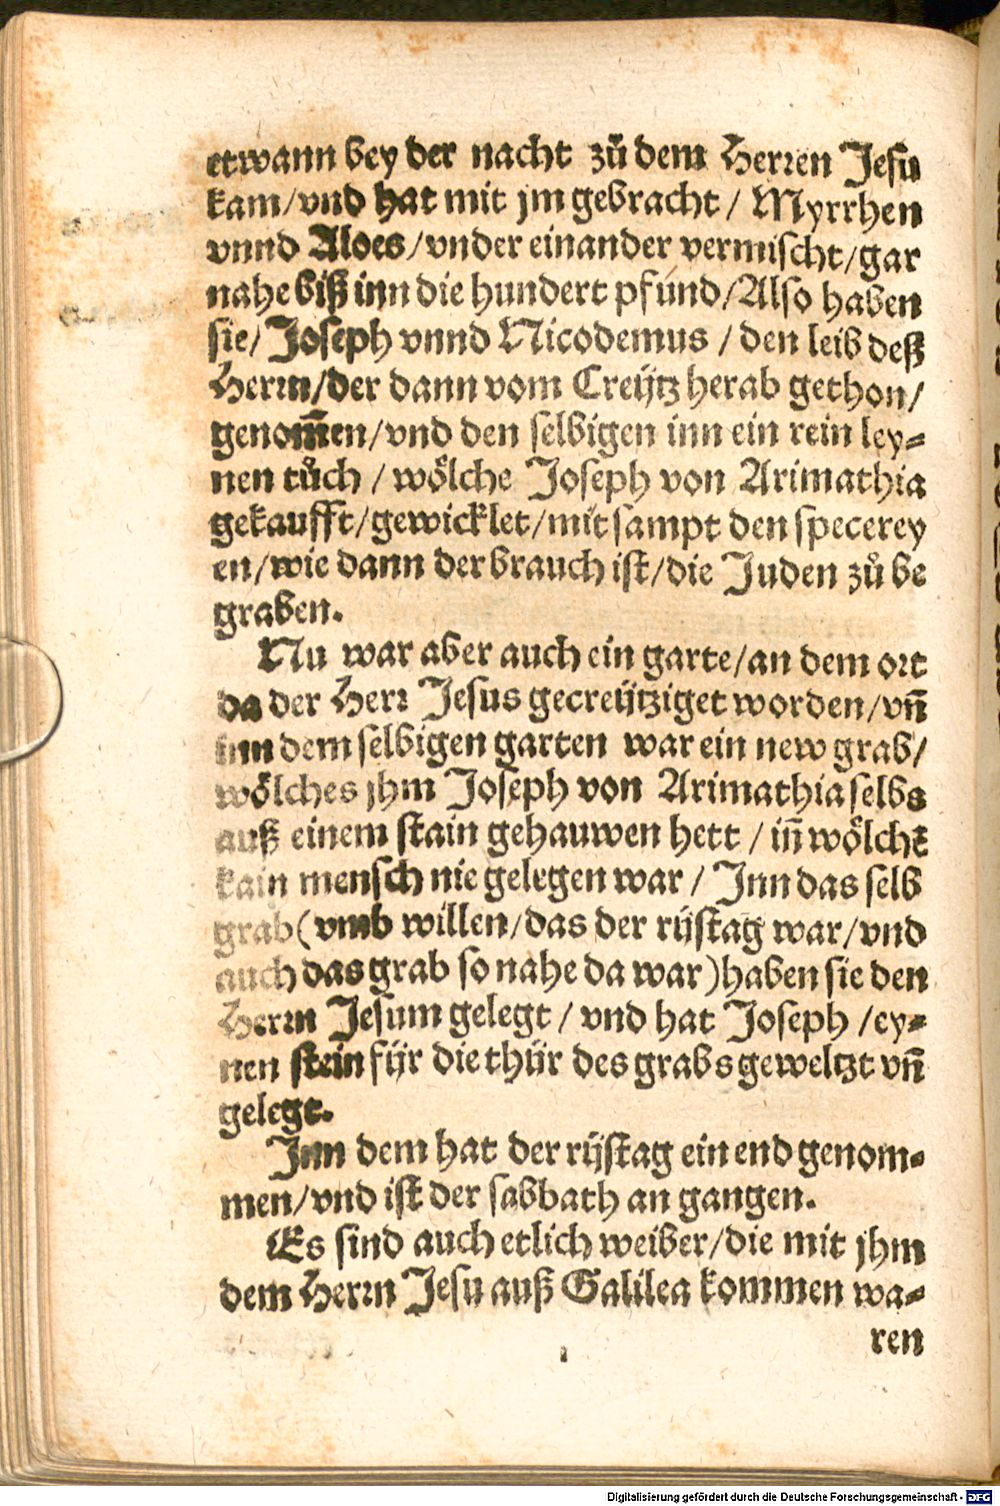 etwann bey der nacht zů dem Herren Jesu
kam/vnd hat mit jm gebracht/ Myrrhen
vnnd Aloes/vnder einander vermischt/gar
nahe biß inn die hundert pfund/Also haben
sie/ Joseph vnnd Nicodemus / den leib deß
Herrn/der dann vom Creytz herab gethon/
genom̃en/vnd den selbigen inn ein rein ley⸗
nen tůch / wölche Joseph von Arimathia
gekaufft/gewicklet/mit sampt den specerey
en/wie dann der brauch ist/die Juden zů be
graben.
Nu war aber auch ein garte/an dem ort
da der Herr Jesus gecreytziget worden/vñ
inn dem selbigen garten war ein new grab/
wölches jhm Joseph von Arimathia selbs
auß einem stain gehauwen hett / iñ wölchẽ
kain mensch nie gelegen war / Inn das selb
grab (vmb willen/das der rystag war/vnd
auch das grab so nahe da war) haben sie den
Herrn Jesum gelegt / vnd hat Joseph /ey⸗
nen stein für die thür des grabs geweltzt vñ
gelegt.
Inn dem hat der rystag ein end genom⸗
men/vnd ist der sabbath an gangen.
Es sind auch etlich weiber/die mit jhm
dem Herrn Jesu auß Galilea kommen wa⸗
ren
Digitalisierung gefördert durch die Deutsche Forschungsgemeinschaft - DFG